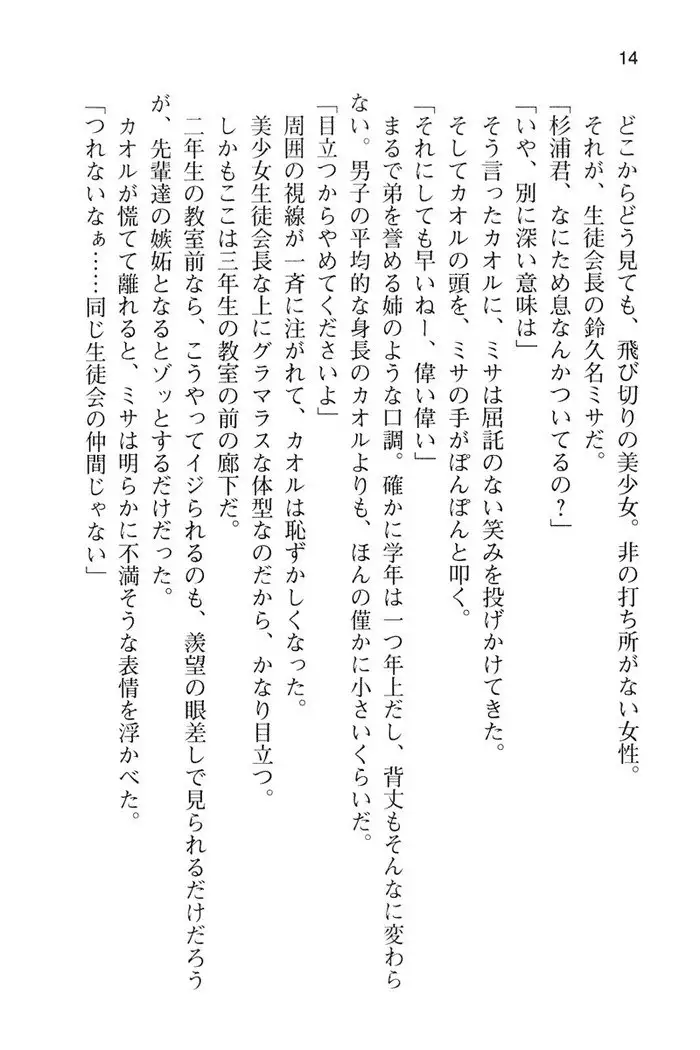 14
どこからどう見ても、飛び切りの美少女。非の打ち所がない女性。
それが、生徒会長の鈴久名ミサだ。
「杉浦君、なにため息なんかついてるの？」
「いや、別に深い意味は」
そう言ったカオルに、ミサは屈託のない笑みを投げかけてきた。
そしてカオルの頭を、ミサの手がぽんぽんと叩く。
「それにしても早いねー、偉い偉い」
まるで弟を誉める姉のような口調。確かに学年は一つ年上だし、背丈もそんなに変わら
ない。男子の平均的な身長のカオルよりも、ほんの僅かに小さいくらいだ。
「目立つからやめてくださいよ」
周囲の視線が一斉に注がれて、カオルは恥ずかしくなった。
美少女生徒会長な上にグラマラスな体型なのだから、かなり目立つ。
しかもここは三年生の教室の前の廊下だ。
二年生の教室前なら、こうやってイジられるのも、羨望の眼差しで見られるだけだろう
が、先輩達の嫉妬となるとゾッとするだけだった。
カオルが慌てて離れると、ミサは明らかに不満そうな表情を浮かべた。
「つれないなぁ……同じ生徒会の仲間じゃない」